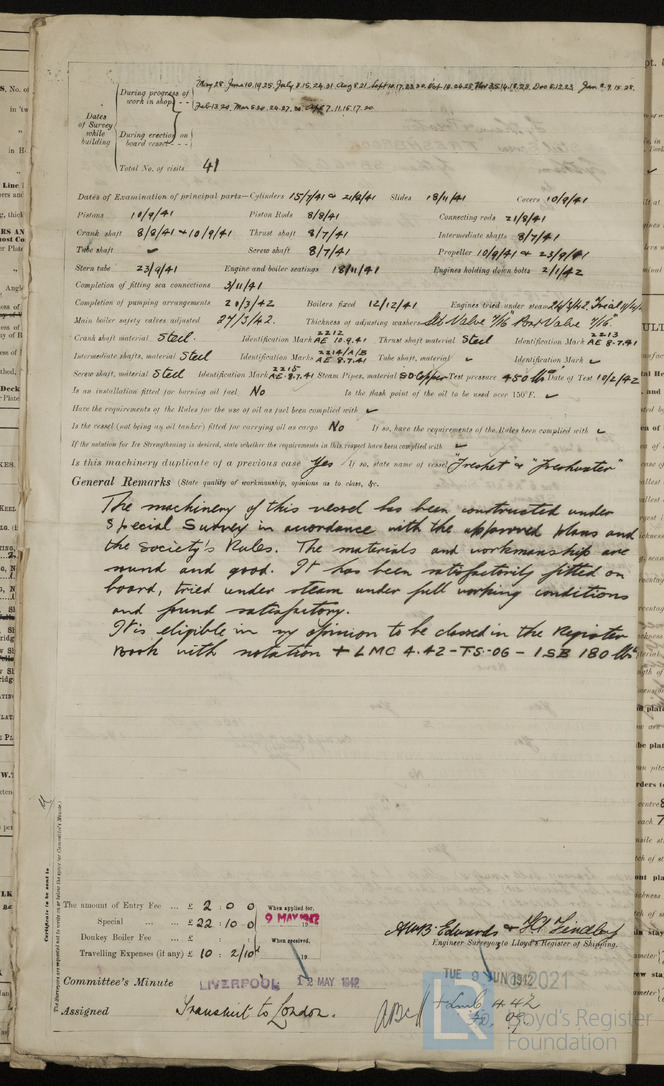 During progress of work in shops - - May 28. June 10.19.25. July 8.15.24.31 Aug 8.21. Sept 10.17.23.30. Oct
Feb 13.20. Mar 5.20.24.27.30. Apr 7.11.15.17.20.
Dates of Survey while building
During erection on board vessel - - -
Total No. of visits 41
Dates of Examination of principal parts—Cylinders 15/7/41 & 21/8/41 Slides 18/11/41 Covers 10/9/41
Pistons 10/9/41 Piston Rods 8/8/41 Connecting rods 21/8/41
Crank shaft 8/8/41 & 10/9/41 Thrust shaft 8/7/41 Intermediate shafts 8/7/41
Tube shaft ✓ Screw shaft 8/7/41 Propeller 10/9/41 & 23/9/41
Stern tube 23/9/41 Engine and boiler seatings 18/11/41 Engines holding down bolts 2/1/42
Completion of fitting sea connections 3/11/41
Completion of pumping arrangements 20/3/42 Boilers fixed 12/12/41 Engines tried under steam 24/3/42. Trial
Main boiler safety valves adjusted 27/3/42. Thickness of adjusting washers Stb Valve 7/16" Port Valve 7/16"
Crank shaft material Steel. Identification Mark 2212 AE 10.9.41 Thrust shaft material Steel Identification Mark 2213 AE 8.7.41
Intermediate shafts, material Steel Identification Marks 2214/A/B AE 8.7.41 Tube shaft, material ✓ Identification Mark ✓
Screw shaft, material Steel Identification Mark 2215 AE 8.7.41 Steam Pipes, material SD Copper Test pressure 450 lbs Date of Test 10/2/42
Is an installation fitted for burning oil fuel No Is the flash point of the oil to be used over 150°F. ✓
Have the requirements of the Rules for the use of oil as fuel been complied with ✓
Is the vessel (not being an oil tanker) fitted for carrying oil as cargo No If so, have the requirements of the Rules been complied with ✓
If the notation for Ice Strengthening is desired, state whether the requirements in this respect have been complied with ✓
Is this machinery duplicate of a previous case Yes If so, state name of vessel "Freshet" & "Freshwater"
General Remarks (State quality of workmanship, opinions as to class, &c.
The machinery of this vessel has been constructed under
Special Survey in accordance with the approved plans and
the Society's Rules. The materials and workmanship are
sound and good. It has been satisfactorily fitted on
board, tried under steam under full working conditions
and found satisfactory.
It is eligible in my opinion to be classed in the Register
Book with notation + LMC 4.42 - TS - OG - 1SB 180 lbs
Certificate to be sent to
The Surveyors are requested not to write on or below the space for Committee's Minute.
The amount of Entry Fee ... £ 2 : 0 : 0 When applied for,
Special ... ... £ 22 : 10 : 0 9 MAY 1942
Donkey Boiler Fee ... £ : : When received,
Travelling Expenses (if any) £ 10 : 2/10d 19
AWB Edwards & H.L. Lindley
Engineer Surveyors to Lloyd's Register of Shipping.
Committee's Minute LIVERPOOL 12 MAY 1942
TUE 9 JUN 1942
Assigned Transmit to London.
+ LMC 4.42
OG.
© 2021
Lloyd's Register
Foundation